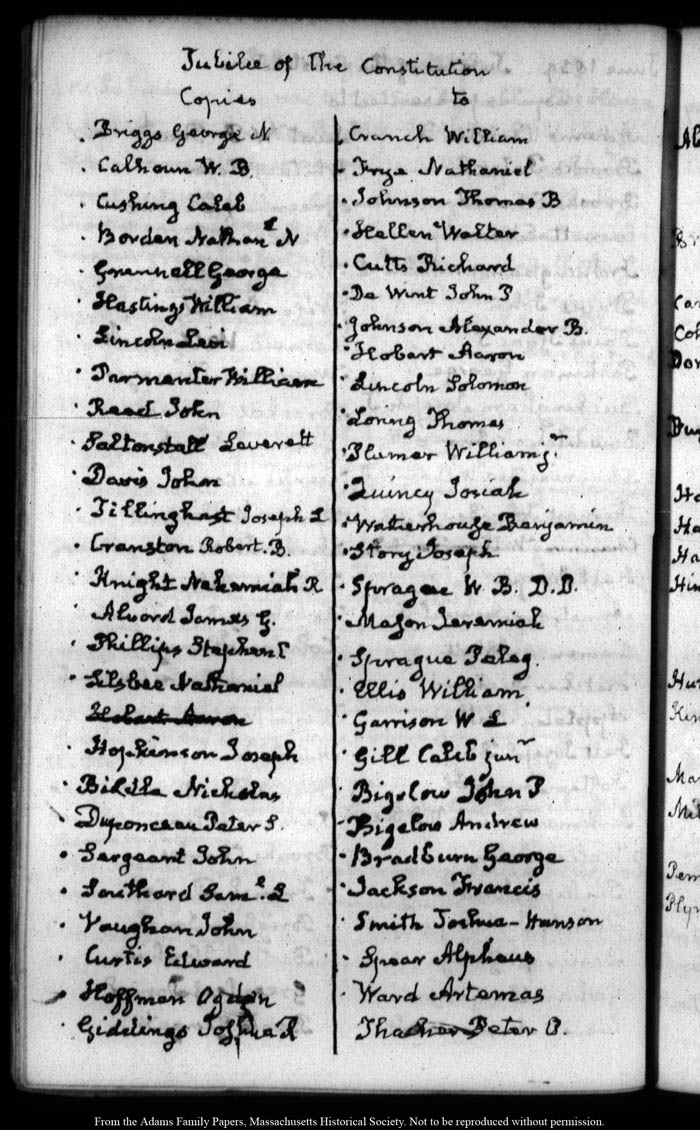 Jubilee of the Constitution
Copies to
Briggs George N
Calhoun W. B.
Cushing Caleb
Borden Nathanl N
Grennell George
Hastings William
Lincoln Levi
Parmenter William
Reed John
Saltonstall Leverett
Davis John
Tillinghast Joseph L
Cranston Robert. B.
Knight Nehemiah R
Alvord James G.
Phillips Stephen C
Silsbee Nathaniel
Hobart Aaron
Hopkinson Joseph
Biddle Nicholas
Duponceau Peter S.
Sergeant John
Southard Saml. L
Vaughan John
Curtis Edward
Hoffman Ogden
Giddings Joshua R
Cranch William
Frye Nathaniel
Johnson Thomas B
Hellen Walter
Cutts Richard
De Wint John P
Johnson Alexander B.
Hobart Aaron
Lincoln Solomon
Loring Thomas
Plumer William jr
Quincy Josiah
Waterhouse Benjamin
Story Joseph
Sprague W. B. D.D.
Mason Jeremiah
Sprague Peleg.
Ellis William
Garrison W L
Gill Caleb junr
Bigelow John P
Bigelow Andrew
Bradburn George
Jackson Francis
Smith Joshua-Hanson
Spear Alpheus
Ward Artemas
Thacher Peter O.
From the Adams Family Papers, Massachusetts Historical Society. Not to be reproduced without permission.